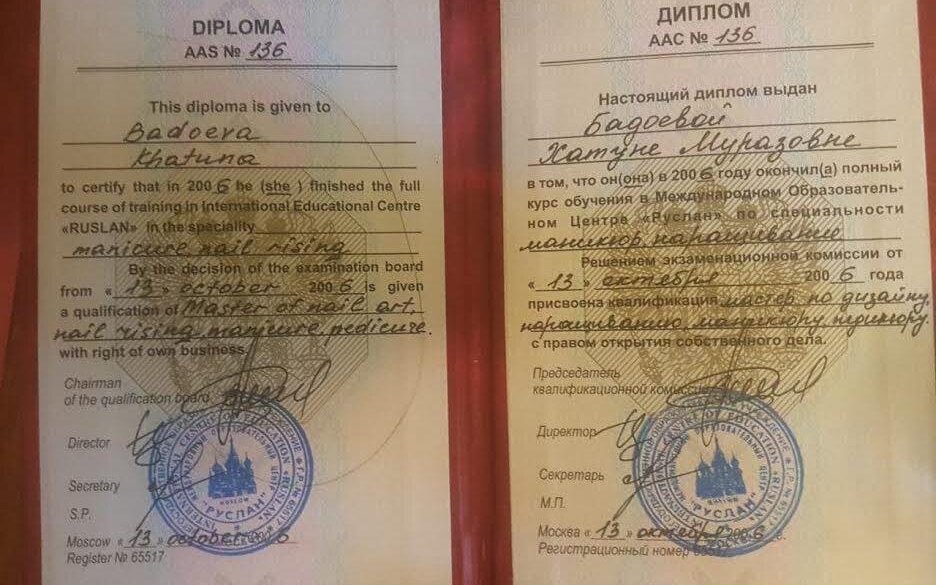 DIPLOMA
AAS № 136
This diploma is given to
Badoeva
Khatuna
to certify that in 2006 he (she ) finished the full
course of training in International Educational Centre
«RUSLAN» in the speciality
manicure, nail rising
By the decision of the examination board
from « 13 » october 2006 is given
a qualification of Master of nail art,
nail rising, manicure, pedicure.
with right of own business.
Chairman
of the qualification board
Director
Secretary
S.P.
Moscow « 13 » october 2006
Register № 65517
MOSCOW
"РУСЛАН"
ДИПЛОМ
ААС № 136
Настоящий диплом выдан
Бадоевой
Хатуне Муразовне
в том, что он(она) в 2006 году окончил(а) полный
курс обучения в Международном Образователь-
ном Центре «Руслан» по специальности
маникюр, наращивание
Решением экзаменационной комиссии от
« 13 » октября 2006 года
присвоена квалификация мастер по дизайну,
наращиванию, маникюру, педикюру.
с правом открытия собственного дела.
Председатель
квалификационной комиссии
Директор
Секретарь
М.П.
Москва « 13 » октября 2006 г.
Регистрационный номер 65517
"РУСЛАН"